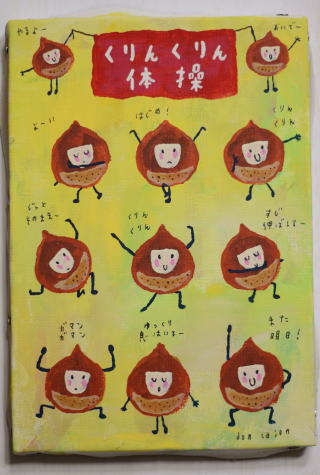 やるよー
おいでー
くりんくりん
体操
よーい
はじめ!
くりん
くりん
ぐっと
そのままー
くりん
くりん
すじ
伸ばるるー
ガマン
ガマン
ゆっくり
息はいてー
また
明日!
don cajon